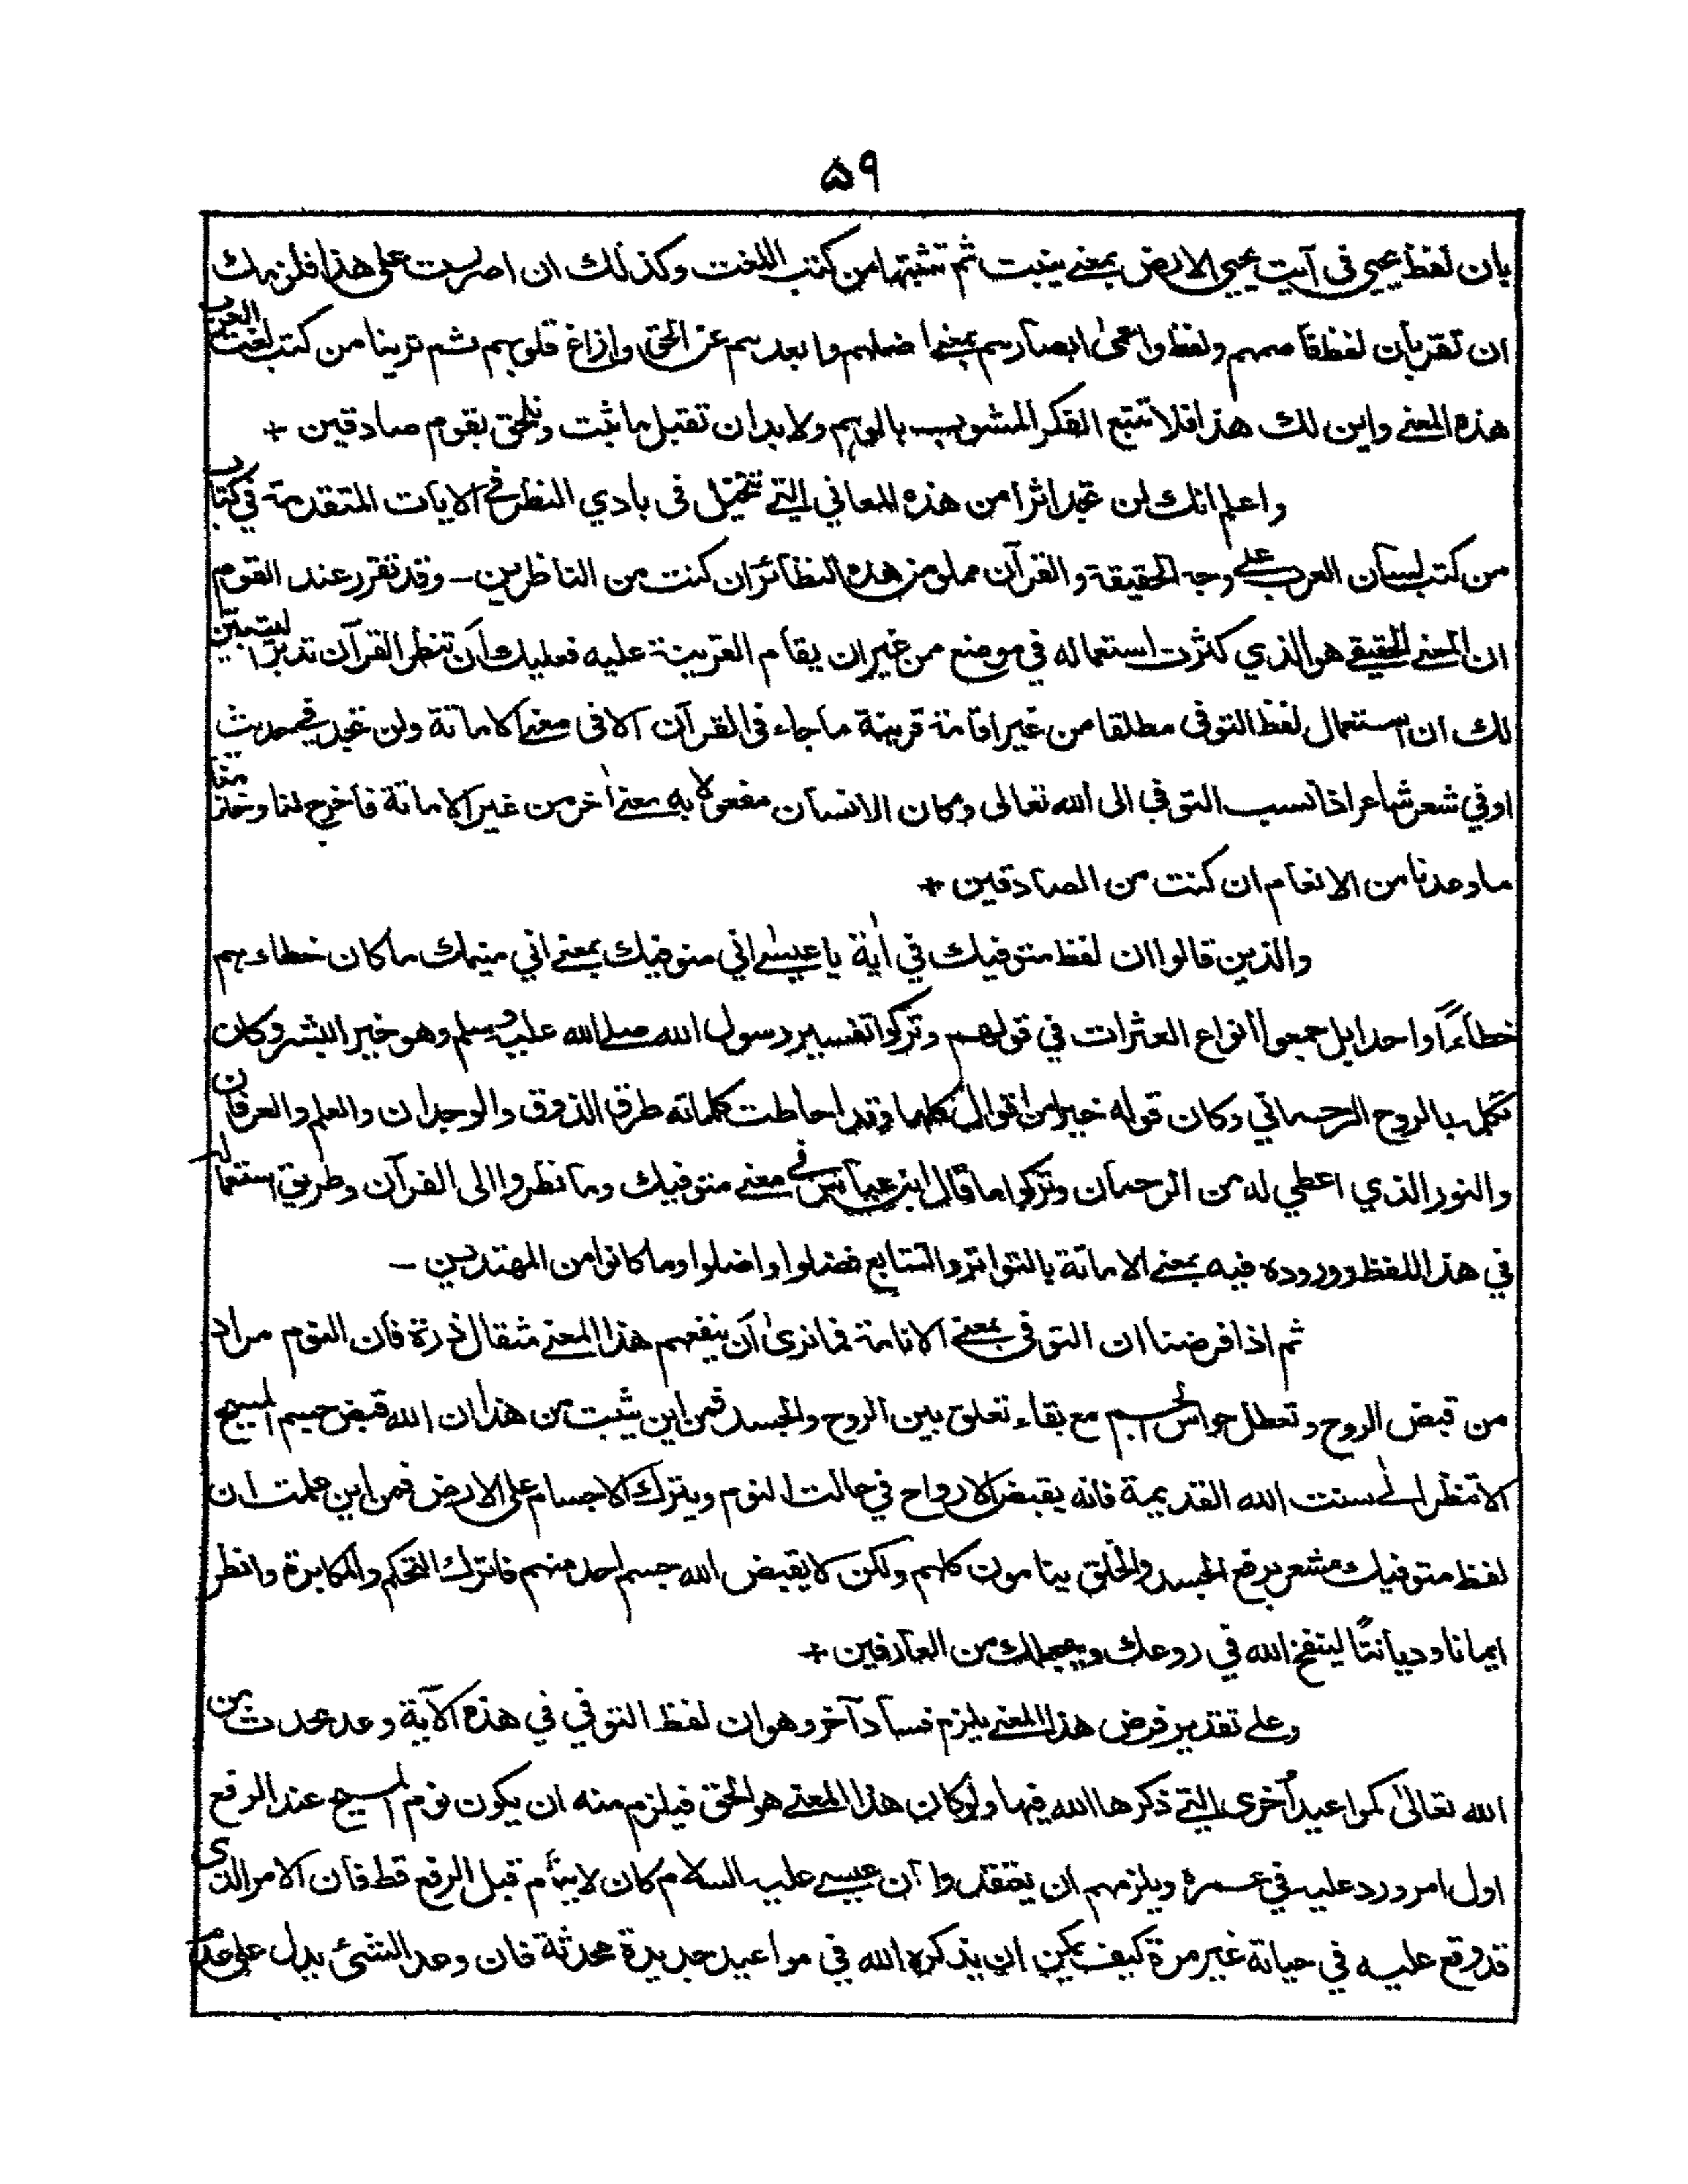 ۵۹
بان لفظ يحيي فى آيت يحيي الارض بمعنے ينبت ثم تثبتها من كتب اللغت وكذلك ان اصررت على هذا فلزمك
ان تقر بأن لفظ فاصمهم ولفظ واعمىٰ ابصارهم بمعنے اضلهم وابعدهم عن الحق وازاغ قلوبهم ثم ترينا من كتب لغت العرب
هذه المعنے واين لك هذا فلا تتبع الفكر المشوب بالوهم ولا بد ان تقبل ما ثبت وتلحق بقوم صادقين +
واعلم انك لن تجد اثرا من هذه المعاني التے تتخيّل فى بادي النظر فے الايات المتقدمة في كتاب
من كتب لسان العرب علے وجه الحقيقة والقرآن مملو من هذه النظائر ان كنت من الناظرين – وقد تقرر عند القوم
ان المعنے الحقيقے هو الذي كثرت استعماله في موضع من غير ان يقام القرينة عليه فعليك أن تنظر القرآن تدبّرا ليتبيّن
لك ان استعمال لفظ التوفى مطلقا من غير اقامة قرينة ما جاء فى القرآن الا فى معنے الاماتة ولن تجد فے حديث
او في شعر شاعر اذا نسب التوفي الى الله تعالى وكان الانسان مفعولا به معنے اٰخر من غير الاماتة فأخرج لنا وخذ منّا
ما وعدنا من الانعام ان كنت من الصادقين +
والذين قالوا ان لفظ متوفيك في اٰية يا عيسےٰ اني متوفيك بمعنے اني منيمك ما كان خطاءهم
خطاءًا واحدا بل جمعوا انواع العثرات في قولهم وتركوا تفسير رسول الله صلے الله عليه وسلم وهو خير البشر وكان
تكلمه بالروح الرحماني وكان قوله خيرا من اقوال كلها وقد احاطت كلماته طرق الذوق والوجدان والعلم والعرفان
والنور الذي اعطي له من الرحمان وتركوا ما قال ابن عباس فے معنے متوفيك وما نظروا الى القرآن وطريق استعماله
في هذا اللفظ ووروده فيه بمعنے الاماتة بالتواتر والتتابع فضلوا واضلوا وما كانوا من المهتدين –
ثم اذا فرضنا ان التوفى بمعنے الانامة فما نرىٰ أن ينفعهم هذا المعنے مثقال ذرة فأن النوم مراد
من قبض الروح وتعطل حواس الجسم مع بقاء تعلق بين الروح والجسد فمن اين يثبت من هذا ان الله قبض جسم المسيح
الا تنظر الےٰ سنت الله القديمة فانه يقبض الارواح في حالت النوم ويترك الاجسام على الارض فمن اين علمت ان
لفظ متوفيك مشعر برفع الجسد والخلق ينامون كلهم ولكن لا يقبض الله جسم احد منهم فاترك التحكم والمكابرة وانظر
ايمانا وديانتًا لينفخ الله في روعك ويجعلك من العارفين +
وعلى تقدير فرض هذا المعنے يلزم فسأد آخر وهو ان لفظ التوفي في هذه الآية وعد محدث من
الله تعالىٰ كمواعيد أخرى التے ذكرها الله فيها ولو كان هذا المعنے هو الحق فيلزم منه ان يكون نوم المسيح عند الرفع
اول امر ورد عليه في عمره ويلزمهم ان يعتقدوا أن عيسے عليه السلام كان لا ينام قبل الرفع قط فأن الامر الذى
قد وقع عليه في حياته غير مرة كيف يمكن ان يذكره الله في مواعيد جديدة محدثة فان وعد الشئ يدل على عدم